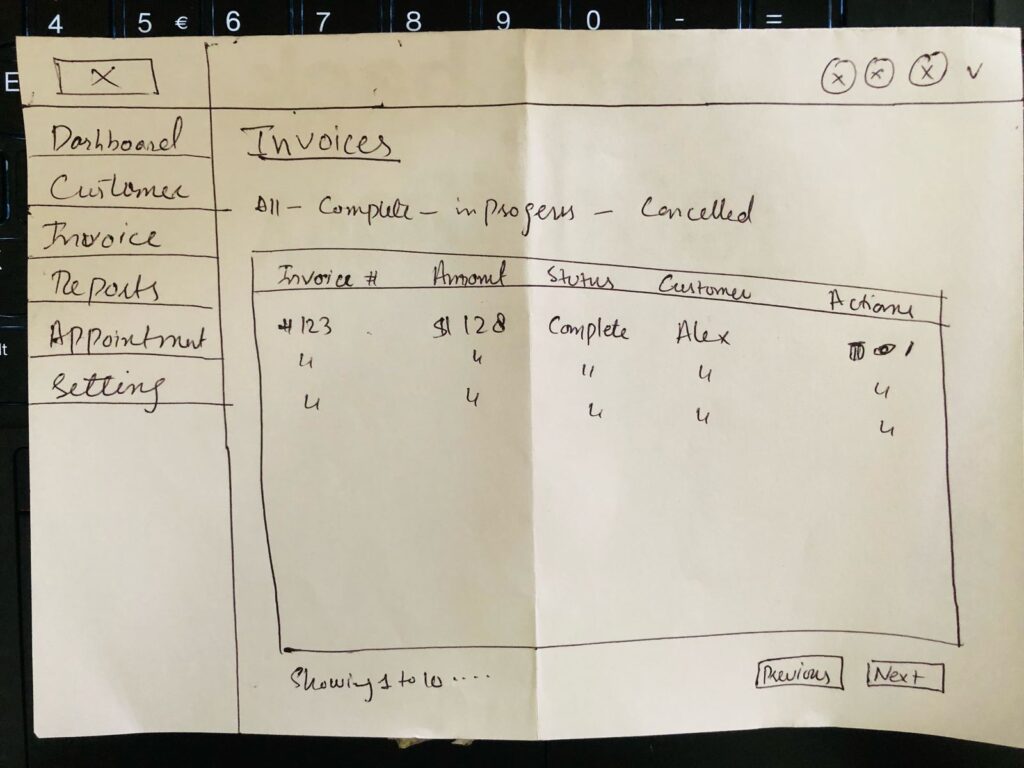 4 5 € 6 7 8 9 0 - =
E
X
X X X
Dashboard
Customer
Invoice
Reports
Appointment
Setting
Invoices
All - Complete - in progress - Cancelled
Invoice # Amount Status Customer Actions
#123 $128 Complete Alex
" " " " "
" " " " "
Showing 1 to 10 ....
Previous Next